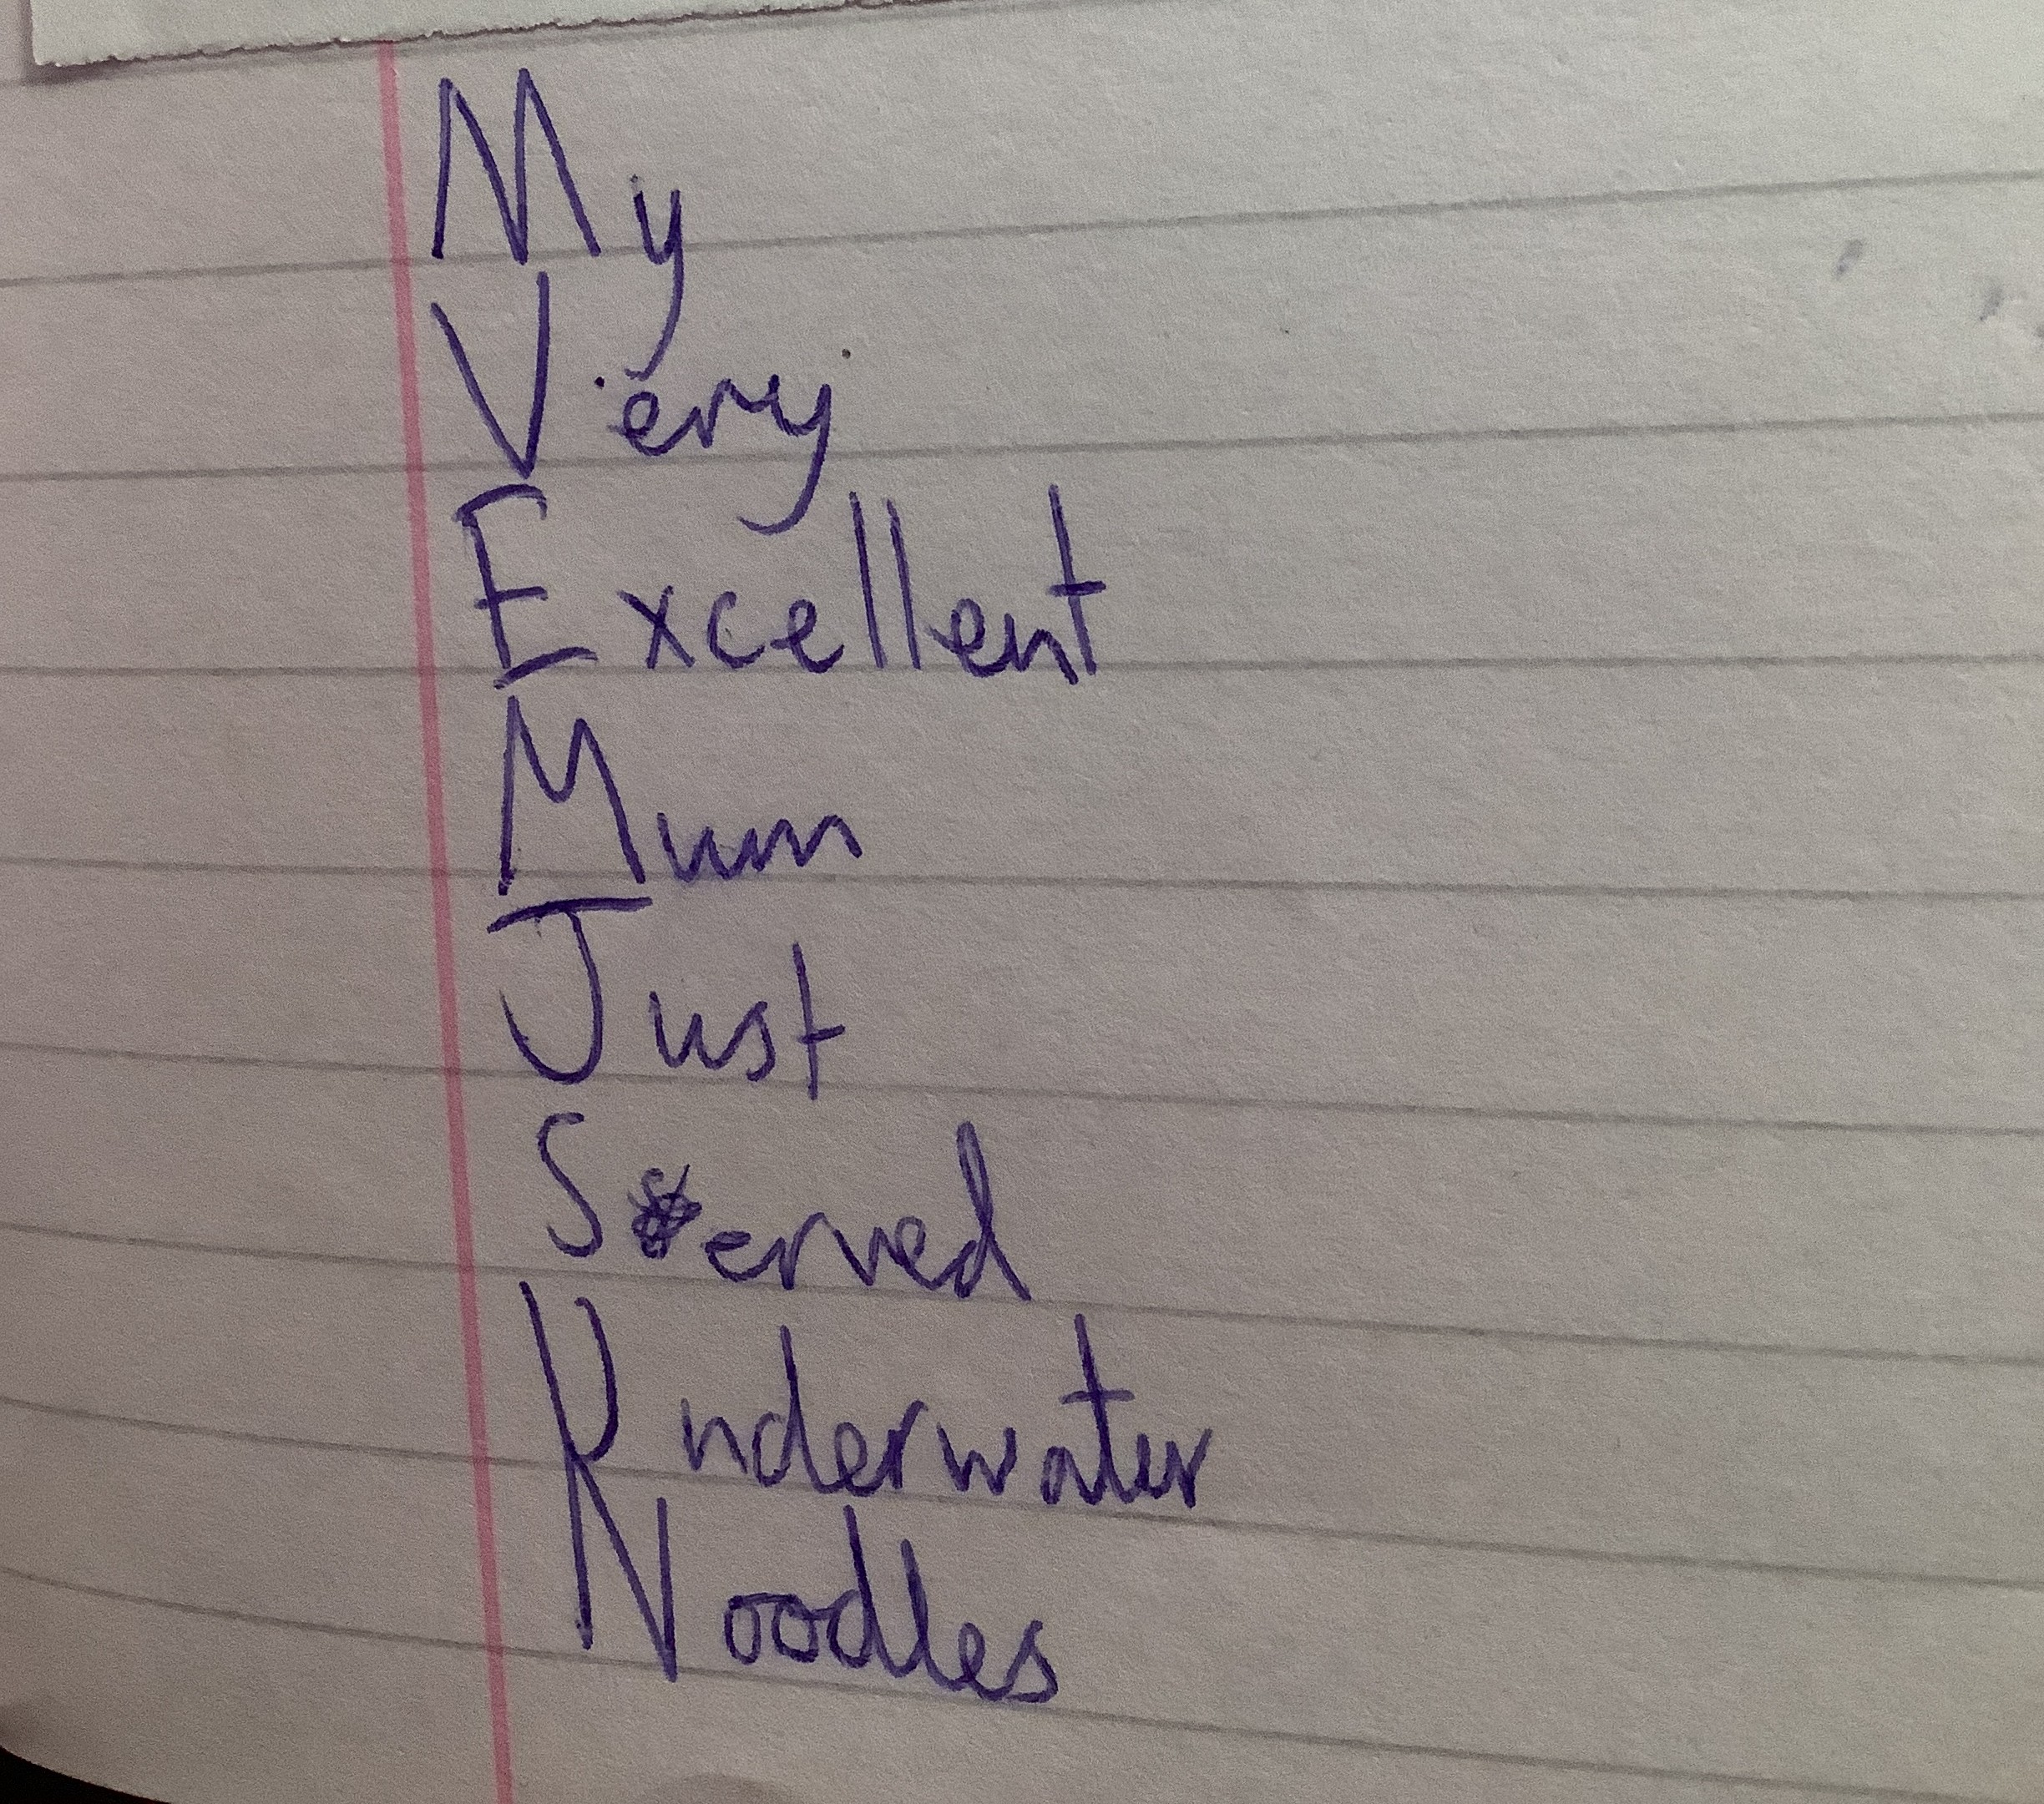 My
Very
Excellent
Mum
Just
Served
Underwater
Noodles